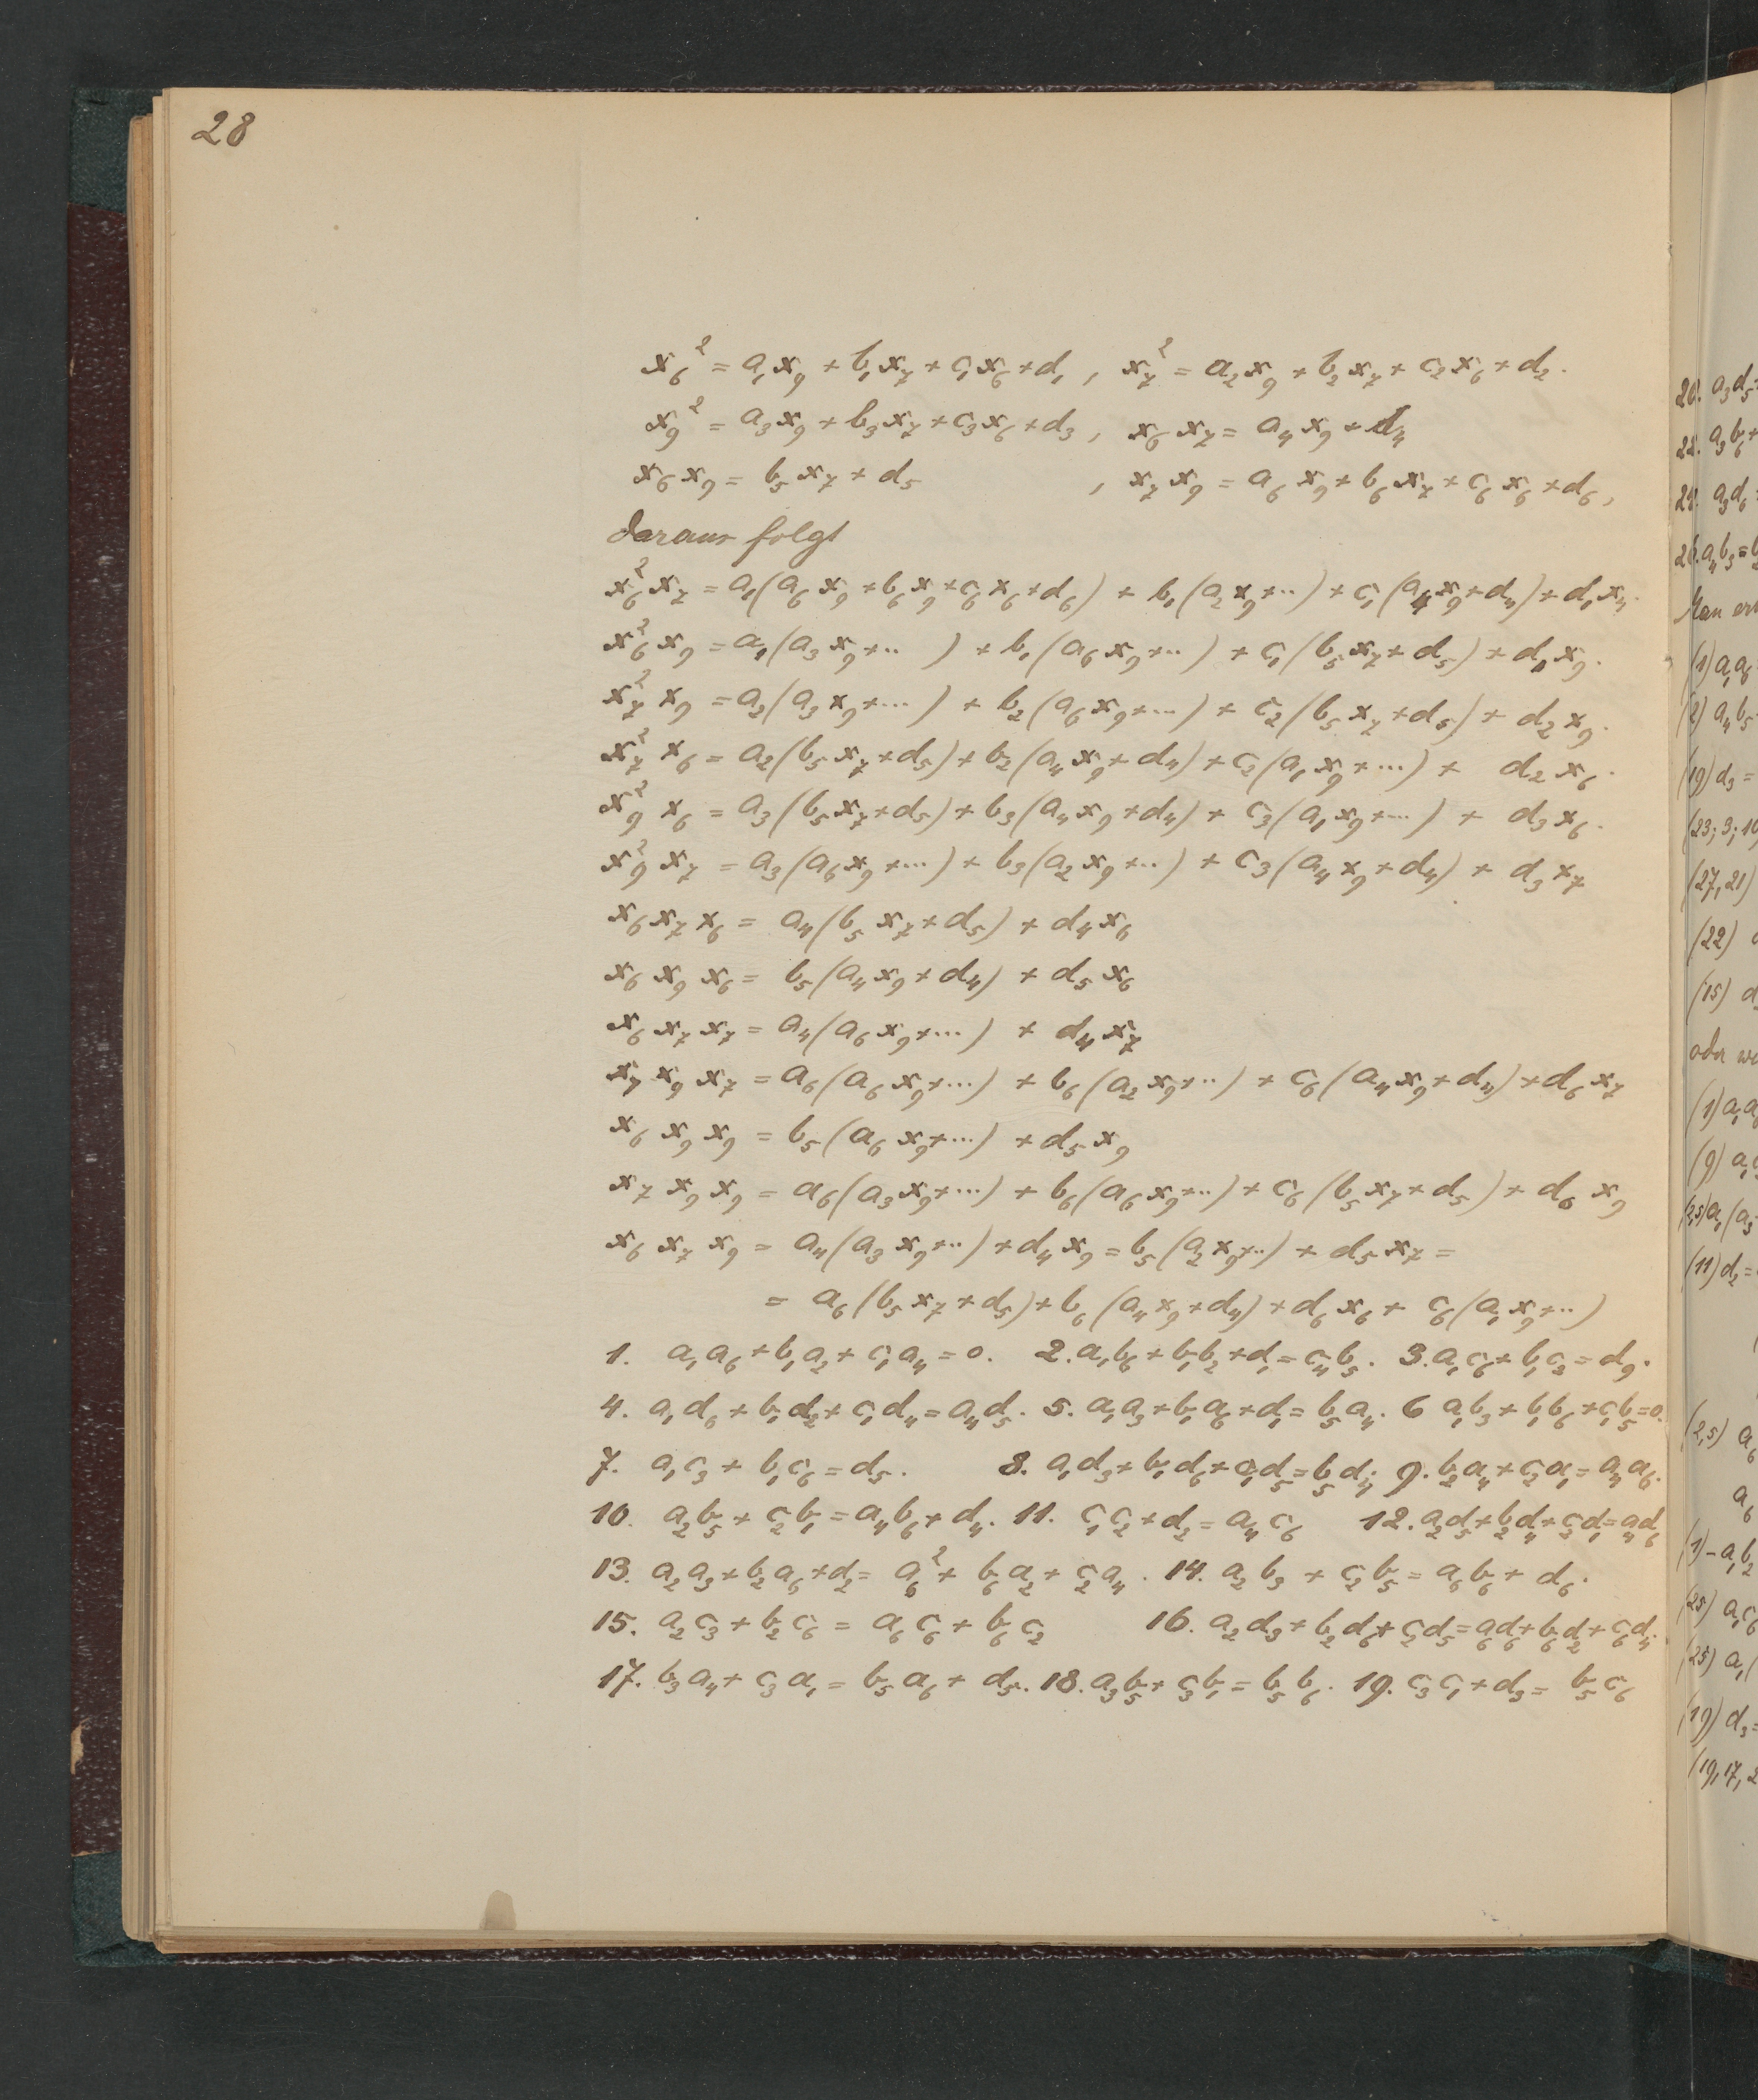 28
x₆² = a₁x₉ + b₁x₇ + c₁x₆ + d₁ , x₇² = a₂x₉ + b₂x₇ + c₂x₆ + d₂.
x₉² = a₃x₉ + b₃x₇ + c₃x₆ + d₃ , x₆x₇ = a₄x₉ + d₄
x₆x₉ = b₅x₇ + d₅ , x₇x₉ = a₆x₉ + b₆x₇ + c₆x₆ + d₆ ,
daraus folgt
x₆²x₇ = a₁(a₆x₉ + b₆x₉ + c₆x₆ + d₆) + b₁(a₂x₉ + ··) + c₁(a₄x₉ + d₄) + d₁x₇.
x₆²x₉ = a₁(a₃x₉ + ·· ) + b₁(a₆x₉ + ··) + c₁(b₅x₇ + d₅) + d₁x₉.
x₇²x₉ = a₂(a₃x₉ + ···) + b₂(a₆x₉ + ···) + c₂(b₅x₇ + d₅) + d₂x₉.
x₇²x₆ = a₂(b₅x₇ + d₅) + b₂(a₄x₉ + d₄) + c₂(a₁x₉ + ···) + d₂x₆.
x₉²x₆ = a₃(b₅x₇ + d₅) + b₃(a₄x₉ + d₄) + c₃(a₁x₉ + ···) + d₃x₆.
x₉²x₇ = a₃(a₆x₉ + ···) + b₃(a₂x₉ + ··) + c₃(a₄x₉ + d₄) + d₃x₇
x₆x₇x₆ = a₄(b₅x₇ + d₅) + d₄x₆
x₆x₉x₆ = b₅(a₄x₉ + d₄) + d₅x₆
x₆x₇x₇ = a₄(a₆x₉ + ···) + d₄x₇
x₇x₉x₇ = a₆(a₆x₉ + ···) + b₆(a₂x₉ + ··) + c₆(a₄x₉ + d₄) + d₆x₇
x₆x₉x₉ = b₅(a₆x₉ + ···) + d₅x₉
x₇x₉x₉ = a₆(a₃x₉ + ···) + b₆(a₆x₉ + ··) + c₆(b₅x₇ + d₅) + d₆x₉
x₆x₇x₉ = a₄(a₃x₉ + ··) + d₄x₉ = b₅(a₂x₉ + ··) + d₅x₇ =
= a₆(b₅x₇ + d₅) + b₆(a₄x₉ + d₄) + d₆x₆ + c₆(a₁x₉ + ··)
1. a₁a₆ + b₁a₂ + c₁a₄ = 0. 2. a₁b₆ + b₁b₂ + d₁ = a₄b₅. 3. a₁c₆ + b₁c₂ = d₉.
4. a₁d₆ + b₁d₂ + c₁d₄ = a₄d₅. 5. a₁a₃ + b₁a₆ + d₁ = b₅a₄. 6 a₁b₃ + b₁b₆ + c₁b₅ = 0.
7. a₁c₃ + b₁c₆ = d₅. 8. a₁d₃ + b₁d₆ + c₁d₅ = b₅d₄; 9. b₂a₄ + c₂a₁ = a₄a₆.
10. a₂b₅ + c₂b₁ = a₄b₆ + d₄. 11. c₁c₂ + d₂ = a₄c₆ 12. a₂d₅ + b₂d₄ + c₂d₁ = a₄d₆
13. a₂a₃ + b₂a₆ + d₂ = a₆² + b₆a₂ + c₂a₄. 14. a₂b₃ + c₂b₅ = a₆b₆ + d₆.
15. a₂c₃ + b₂c₆ = a₆c₆ + b₆c₂ 16. a₂d₃ + b₂d₆ + c₂d₅ = a₆d₆ + b₆d₂ + c₆d₄.
17. b₃a₄ + c₃a₁ = b₅a₆ + d₅. 18. a₃b₅ + c₃b₁ = b₅b₆. 19. c₃c₁ + d₃ = b₅c₆